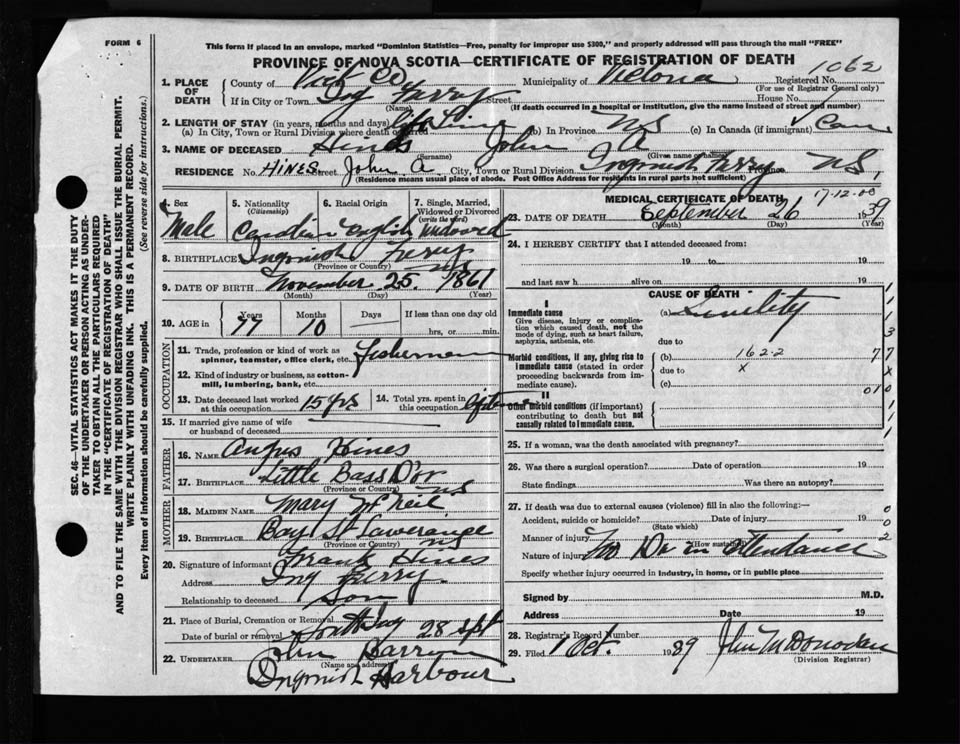 FORM 6
This form if placed in an envelope, marked "Dominion Statistics—Free, penalty for improper use $300," and properly addressed will pass through the mail "FREE"
PROVINCE OF NOVA SCOTIA—CERTIFICATE OF REGISTRATION OF DEATH
1062
1. PLACE OF DEATH
County of Vict Co Municipality of Victoria Registered No.
(For use of Registrar General only)
If in City or Town Ing Ferry Street House No.
(Name) (If death occurred in a hospital or institution, give the name instead of street and number)
2. LENGTH OF STAY (in years, months and days)
(a) In City, Town or Rural Division where death occurred Life Time (b) In Province NS (c) In Canada (if immigrant) Can
3. NAME OF DECEASED Hines John A
(Surname) (Given name or names)
RESIDENCE No. HINES Street John A City, Town or Rural Division Ingonish Ferry Province NS
(Residence means usual place of abode. Post Office Address for residents in rural parts not sufficient)
4. Sex
Male
5. Nationality
(Citizenship)
6. Racial Origin
English
7. Single, Married, Widowed or Divorced
(write the word)
8. BIRTHPLACE Ingonish Ferry
(Province or Country) NS
9. DATE OF BIRTH November 25 1861
(Month) (Day) (Year)
10. AGE in
Years Months Days If less than one day old
77 10 hrs. or min.
OCCUPATION
11. Trade, profession or kind of work as spinner, teamster, office clerk, etc. Fisherman
12. Kind of industry or business, as cotton-mill, lumbering, bank, etc.
13. Date deceased last worked at this occupation 15 yrs
14. Total yrs. spent in this occupation
15. If married give name of wife or husband of deceased
FATHER
16. NAME Angus Hines
17. BIRTHPLACE Little Bass D'or
(Province or Country) NS
MOTHER
18. MAIDEN NAME Mary McNeil
19. BIRTHPLACE Bay St Lawerance
(Province or Country) NS
20. Signature of informant Frank Hines
Address Ing Ferry
Relationship to deceased Son
21. Place of Burial, Cremation or Removal South Ing
Date of burial or removal 28 Spt
22. UNDERTAKER John
(Name and address)
Ingonish Harbour
MEDICAL CERTIFICATE OF DEATH
17-12-00
23. DATE OF DEATH September 26 1939
(Month) (Day) (Year)
24. I HEREBY CERTIFY that I attended deceased from:
19 to 19
and last saw h alive on 19
CAUSE OF DEATH
I
Immediate cause
Give disease, injury or complication which caused death, not the mode of dying, such as heart failure, asphyxia, asthenia, etc.
(a) Sinility
due to
Morbid conditions, if any, giving rise to immediate cause (stated in order proceeding backwards from immediate cause).
(b) 162-2
due to x
(c)
II
Other morbid conditions (if important) contributing to death but not causally related to immediate cause.
25. If a woman, was the death associated with pregnancy?
26. Was there a surgical operation? Date of operation 19
State findings Was there an autopsy?
27. If death was due to external causes (violence) fill in also the following:—
Accident, suicide or homicide? Date of injury 19
(State which)
Manner of injury
(How sustained)
Nature of injury No Dr in attendance
Specify whether injury occurred in industry, in home, or in public place
Signed by M.D.
Address Date 19
28. Registrar's Record Number
29. Filed 1 Oct. 1939
(Division Registrar)
SEC. 46—VITAL STATISTICS ACT MAKES IT THE DUTY OF THE UNDERTAKER OR PERSON ACTING AS UNDERTAKER TO OBTAIN ALL THE PARTICULARS REQUIRED IN THE "CERTIFICATE OF REGISTRATION OF DEATH" AND TO FILE THE SAME WITH THE DIVISION REGISTRAR WHO SHALL ISSUE THE BURIAL PERMIT.
WRITE PLAINLY WITH UNFADING INK. THIS IS A PERMANENT RECORD.
Every item of information should be carefully supplied. (See reverse side for instructions).